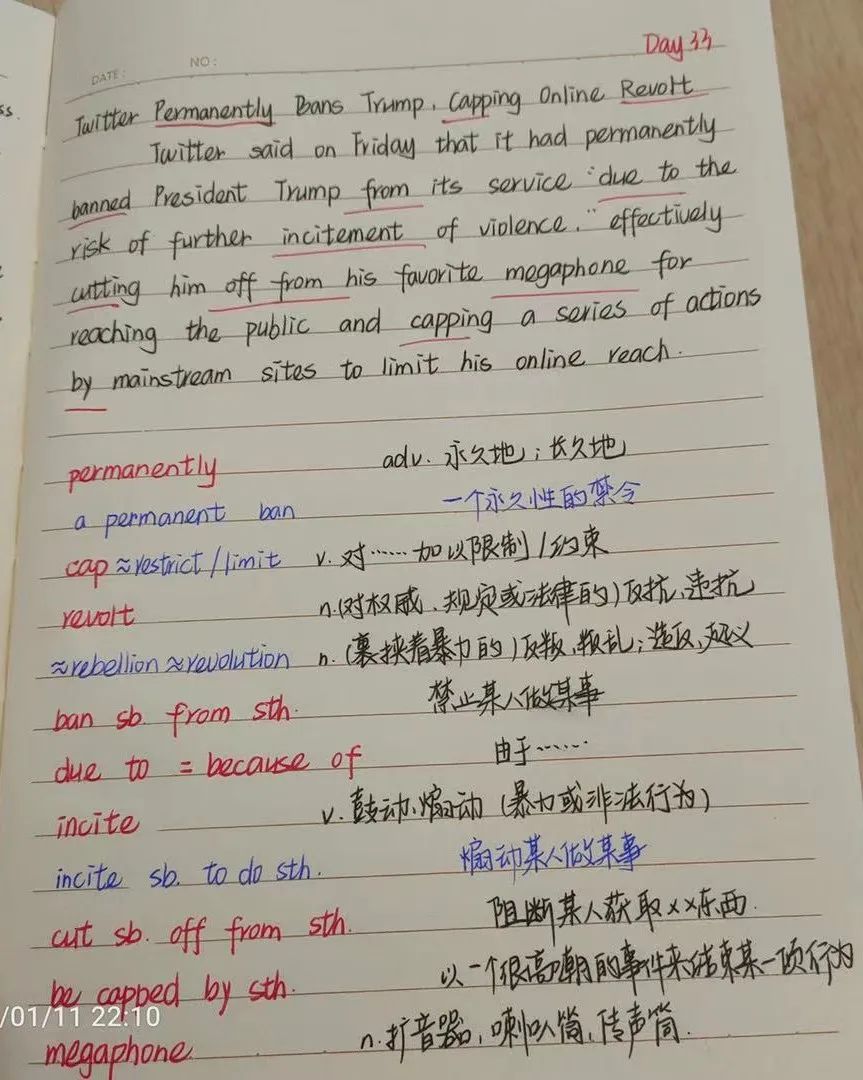 Day 33
DATE: NO:
Twitter Permanently Bans Trump, Capping Online Revolt
Twitter said on Friday that it had permanently
banned President Trump from its service "due to the
risk of further incitement of violence," effectively
cutting him off from his favorite megaphone for
reaching the public and capping a series of actions
by mainstream sites to limit his online reach.
permanently adv. 永久地；长久地
a permanent ban 一个永久性的禁令
cap ≈restrict/limit v. 对……加以限制/约束
revolt n.(对权威、规定或法律的)反抗、违抗
≈rebellion≈revolution n. (裹挟着暴力的)反叛,叛乱；造反,起义
ban sb. from sth. 禁止某人做某事
due to = because of 由于……
incite v. 鼓动、煽动 (暴力或非法行为)
incite sb. to do sth. 煽动某人做某事
cut sb. off from sth. 阻断某人获取××东西.
be capped by sth. 以一个很高潮的事件来结束某一项行为
/01/11 22:10
megaphone n.扩音器,喇叭筒,传声筒.